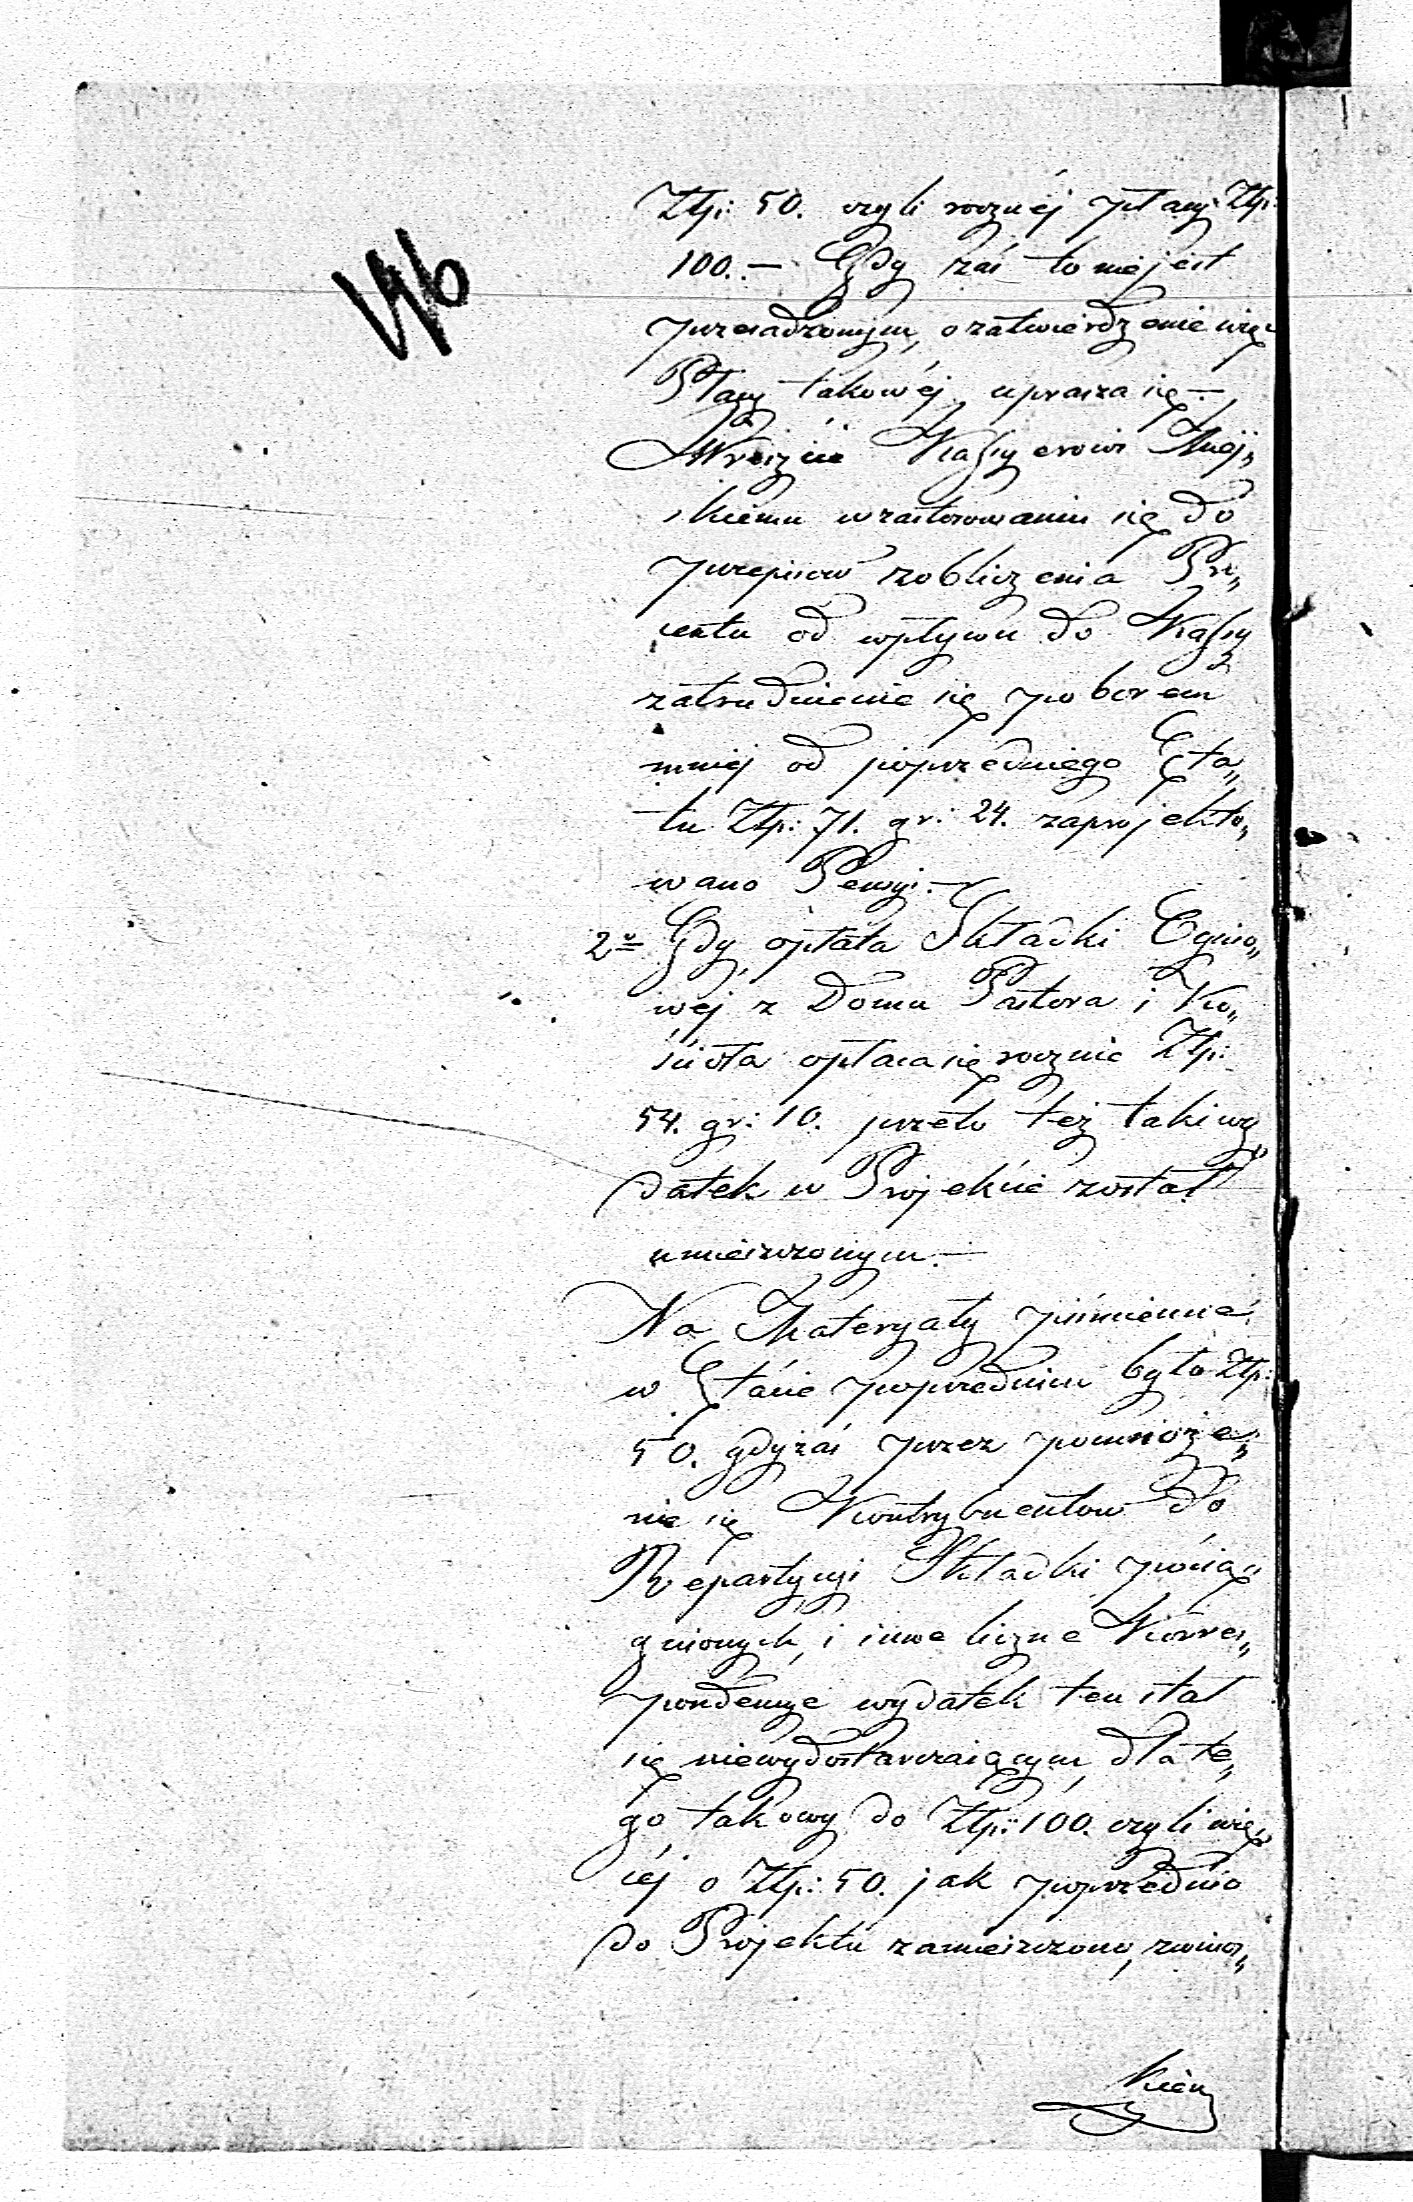 146
Złp: 50. czyli roczniéj płacy Złp:
100. — Gdy zaś to niejest
przesadzonym, o zatwierdzenie więc
Płacy takowéj uprasza się. —
Wreszcie Kassyerowi Miej„
skiemu w zastosowaniu się do
przepisów z obliczenia Pro„
centu od wpływu do Kassy
zatrudnienie się poborem
mniéj od poprzedniego Eta„
tu Złp: 71. gr: 24. zaprojekto„
wano Pensyi. —
2o Gdy opłata Składki Ognio„
wéj z Domu Pastora i Ko„
ścioła opłaca się rocznie Złp:
54. gr: 10. przeto też taki wy„
datek w Projekcie został
umieszczonym. —
Na Materyały piśmienne
w Etacie poprzednim było Złp:
50. gdy zaś przez pomnoże„
nie się Kontrybuentow do
Repartycyi Składki pocią„
gnionych, i inne liczne Korres„
pondencye wydatek ten stał
się niewydostarczaiącym, dla te„
go takowy do Złp: 100. czyli wię„
céj o Złp: 50. jak poprzednio
do Projektu zamieszczono, zwior„